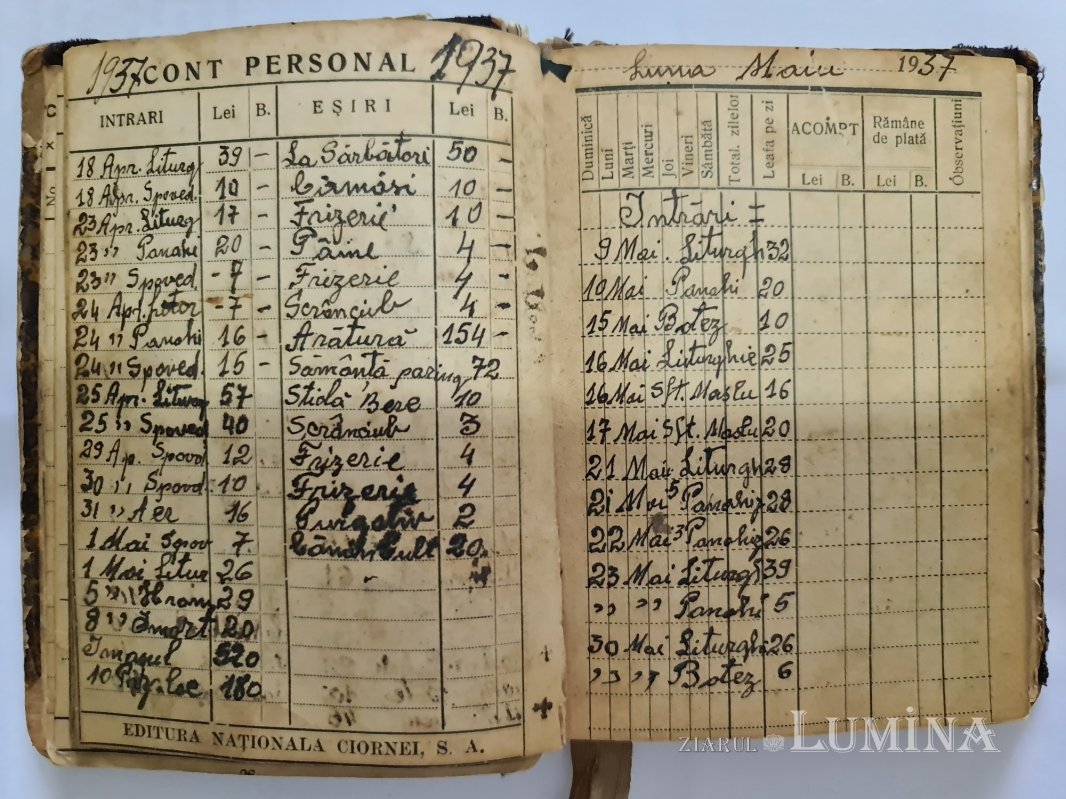 1937 CONT PERSONAL 1937
INTRARI Lei B. EȘIRI Lei B.
18 Apr. Liturg 39 – La Sărbători 50 –
18 Apr. Spoved. 10 – Cârnăsi 10 –
23 Apr. Liturg 17 – Frizerie 10 –
23 ,, Panahi 20 – Pâine 4 –
23 ,, Spoved – 7 – Frizerie 4 –
24 Apr. – 7 – Scrânciub 4 –
24 ,, Panahi 16 – Arătură 154 –
24 ,, Spoved. 15 – Sămânță 72
25 Apr. Liturg 57 Stidă Bere 10
25 ,, Spoved 40 Scrânciub 3
29 Ap. Spovd 12 Frizerie 4
30 ,, Spovd. 10 Frizerie 4
31 ,, Aer 16 Purgativ 2
1 Mai Spov 7 Cult 20
1 Mai Litur 26
5 ,, Hram 29
8 ,, 20
Imașul 520
10 180
EDITURA NAȚIONALA CIORNEI, S. A.
Luna Maiu 1937
Duminică
Luni
Marți
Mercuri
Joi
Vineri
Sâmbătă
Total. zilelor
Leafa pe zi
ACOMPT
Rămâne de plată
Observațiuni
Lei B. Lei B.
Intrări =
9 Mai. Liturgh 32
10 Mai Panahi 20
15 Mai Botez 10
16 Mai Liturghie 25
16 Mai Sft. Maslu 16
17 Mai Sft. Maslu 20
21 Mai Liturgh 28
21 Mai 5 Panahiz 28
22 Mai 3 Panahiz 26
23 Mai Liturgh 39
,, ,, Panahi 5
30 Mai Liturghi 26
,, ,, Botez 6
ZIARUL LUMINA